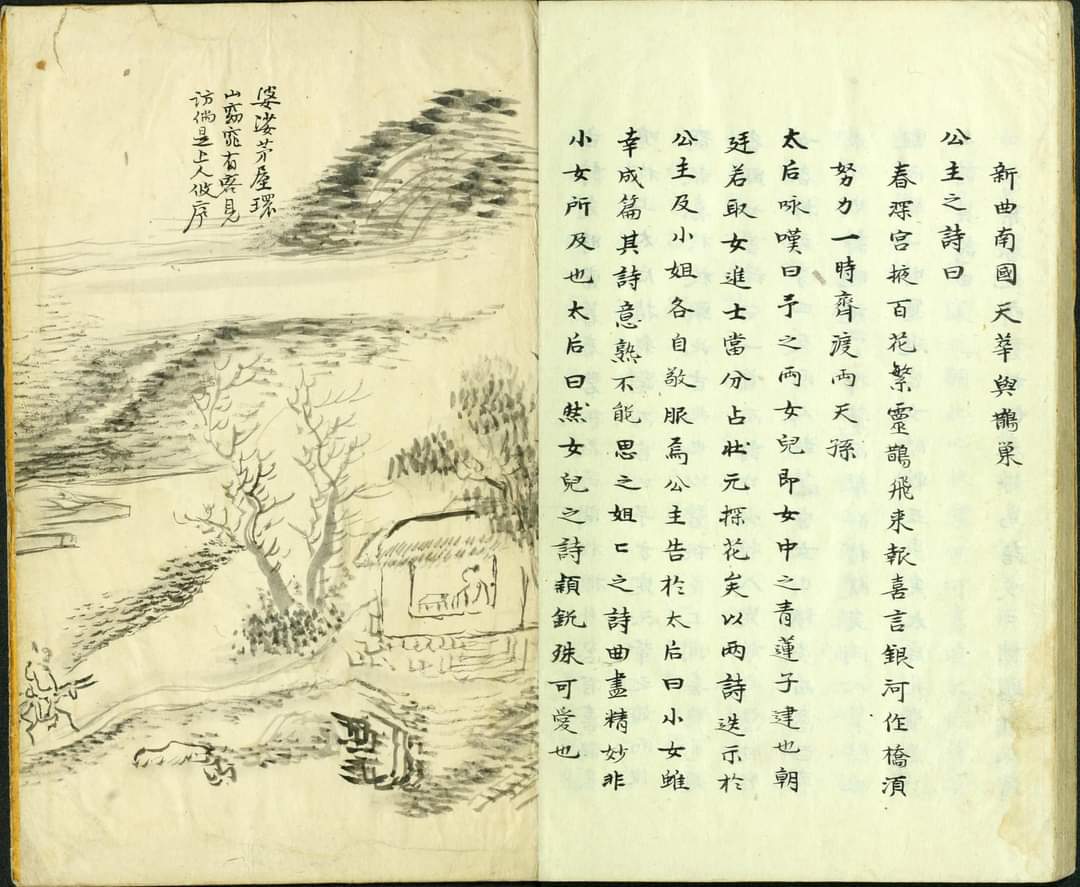 新曲南國天華與鵲巢
公主之詩曰
春深宮掖百花繁靈鵲飛來報喜言銀河作橋須
努力一時齊渡兩天孫
太后咏嘆曰予之兩女兒即女中之青蓮子建也朝
廷若取女進士當分占壯元探花矣以兩詩迭示於
公主及小姐各自敬服焉公主告於太后曰小女雖
幸成篇其詩意熟不能思之姐〻之詩曲盡精妙非
小女所及也太后曰然女兒之詩穎銳殊可愛也
婆娑芳屋環
山窈窕有客見
訪倘是上人